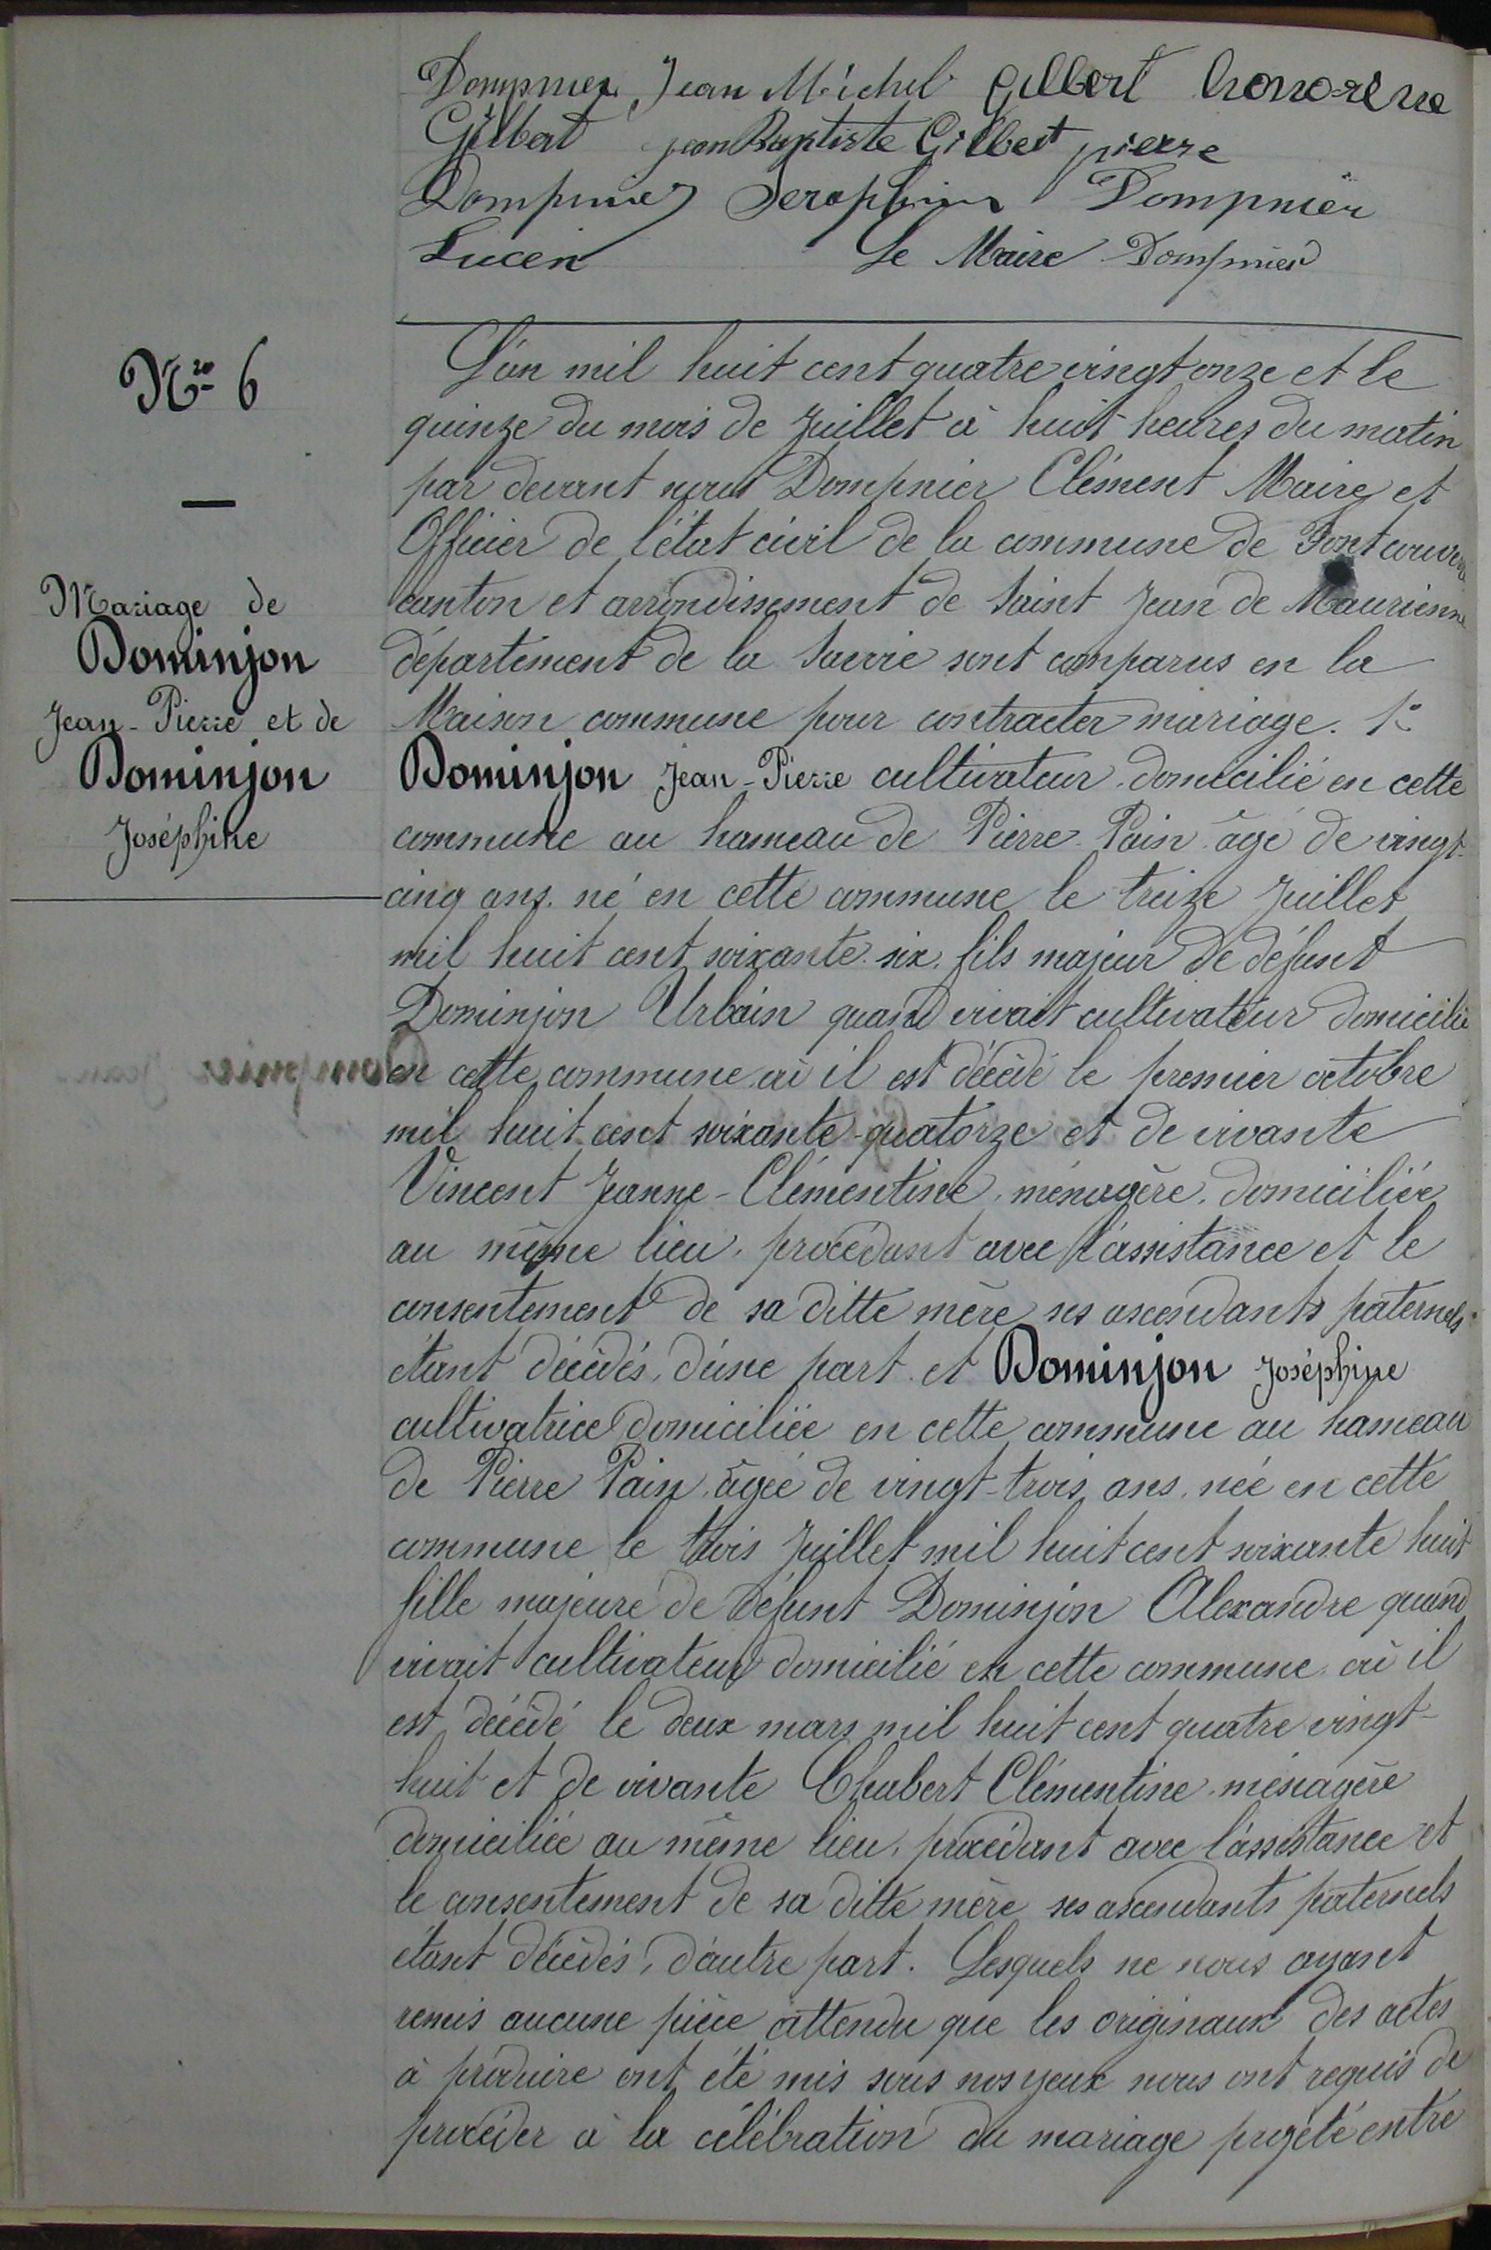 Dompnier Jean Michel Gilbert honorène
Gilbert jean Baptiste Gilbert pierre
Dompnier Seraphin Dompnier
Lucien Le Maire Dompnier
Nro 6
Mariage de
Dominjon
Jean-Pierre et de
Dominjon
Joséphine
L'an mil huit cent quatre vingt onze et le
quinze du mois de Juillet à huit heures du matin
par devant nous Dompnier Clément Maire et
Officier de l'état civil de la commune de Fontcouverte
canton et arrondissement de Saint Jean de Maurienne
département de la Savoie sont comparus en la
Maison commune pour contracter mariage. 1°
Dominjon Jean-Pierre cultivateur domicilié en cette
commune au hameau de Pierre Pain âgé de vingt-
cinq ans. né en cette commune le treize Juillet
mil huit cent soixante six. fils majeur de défunt
Dominjon Urbain quand vivait cultivateur domicilié
en cette commune où il est décédé le premier octobre
mil huit cent soixante-quatorze et de vivante
Vincent Jeanne-Clémentine, ménagère, domiciliée
au même lieu, procédant avec l'assistance et le
consentement de sa ditte mère ses ascendants paternels
étant décédés, d'une part. et Dominjon Joséphine
cultivatrice domiciliée en cette commune au hameau
de Pierre Pain, âgée de vingt-trois ans, née en cette
commune le trois Juillet mil huit cent soixante huit
fille majeure de défunt Dominjon Alexandre quand
vivait cultivateur domicilié en cette commune où il
est décédé le deux mars mil huit cent quatre vingt-
huit et de vivante Chabert Clémentine ménagère
domiciliée au même lieu, procédant avec l'assistance et
le consentement de sa ditte mère ses ascendants paternels
étant décédés, d'autre part. Lesquels ne nous ayant
remis aucune pièce attendu que les originaux des actes
à produire ont été mis sous nos yeux nous ont requis de
procéder à la célébration du mariage projeté entre